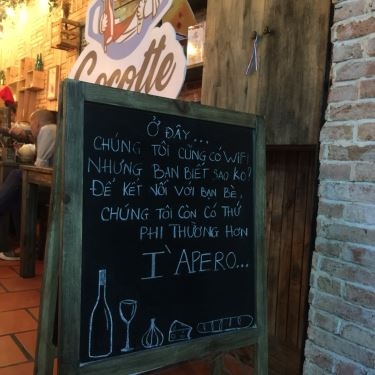 Cocotte
Ở ĐÂY...
CHÚNG TÔI CŨNG CÓ WIFI
NHƯNG BẠN BIẾT SAO KO?
ĐỂ KẾT NỐI VỚI BẠN BÈ,
CHÚNG TÔI CÒN CÓ THỨ
PHI THƯỜNG HƠN
I`APERO...